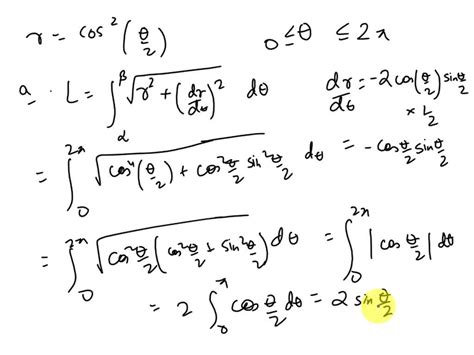 r = cos²(θ/2)    0 ≤ θ ≤ 2π
a. L = ∫_α^β √(r² + (dr/dθ)²) dθ    dr/dθ = -2cos(θ/2) sin θ/2 × 1/2
= ∫_0^{2π} √(cos⁴(θ/2) + cos² θ/2 sin² θ/2) dθ    = -cos θ/2 sin θ/2
= ∫_0^{2π} √(cos² θ/2 (cos² θ/2 + sin² θ/2)) dθ = ∫_0^{2π} |cos θ/2| dθ
= 2 ∫_0^π cos θ/2 dθ = 2 sin θ/2